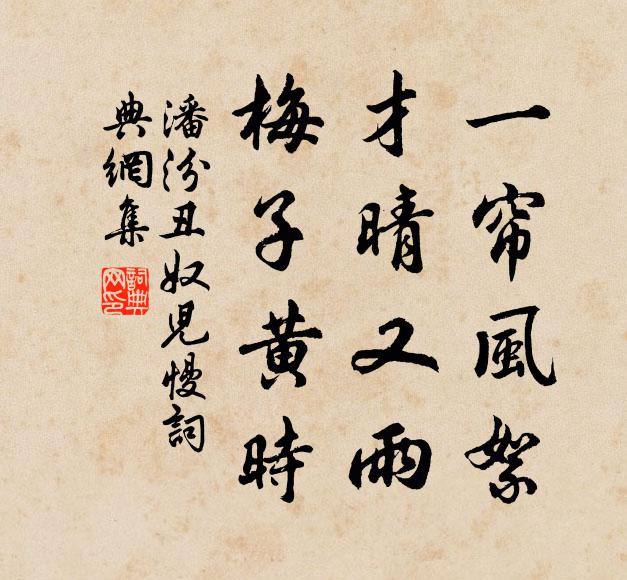 一帘風絮
才晴又雨
梅子黄時
潘汾丑奴児慢詞
典網集
詞典网印